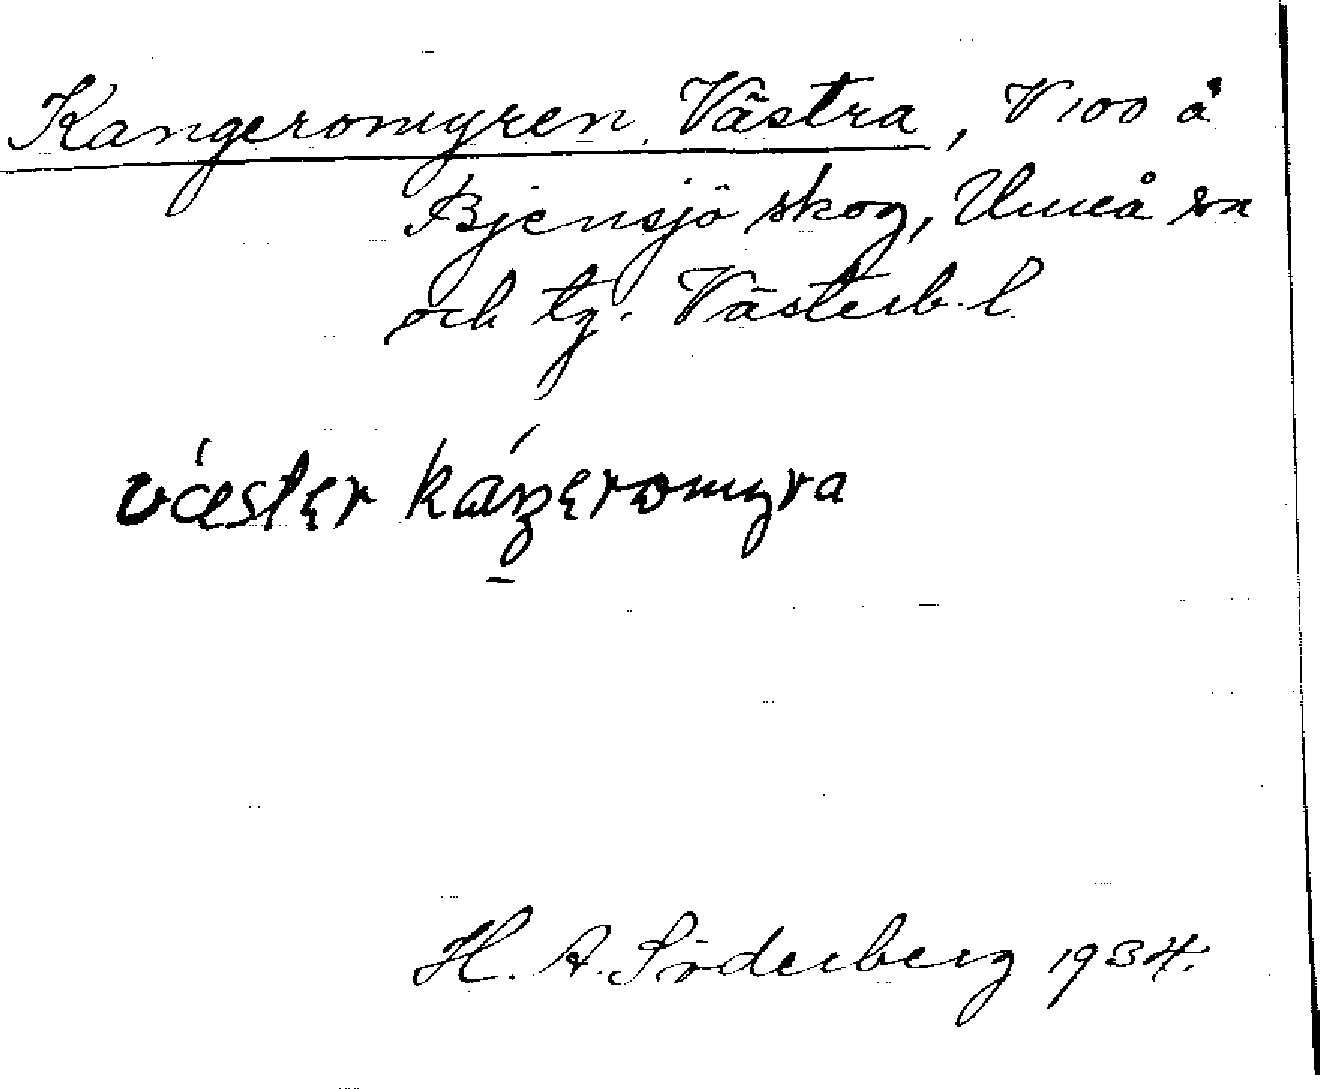 Kangeromyren, Västra, V 100 å
Bjensjö skog, Umeå sn
och tg. Västerb. l.
väster kángeromyra
H. A. Söderberg 1934.